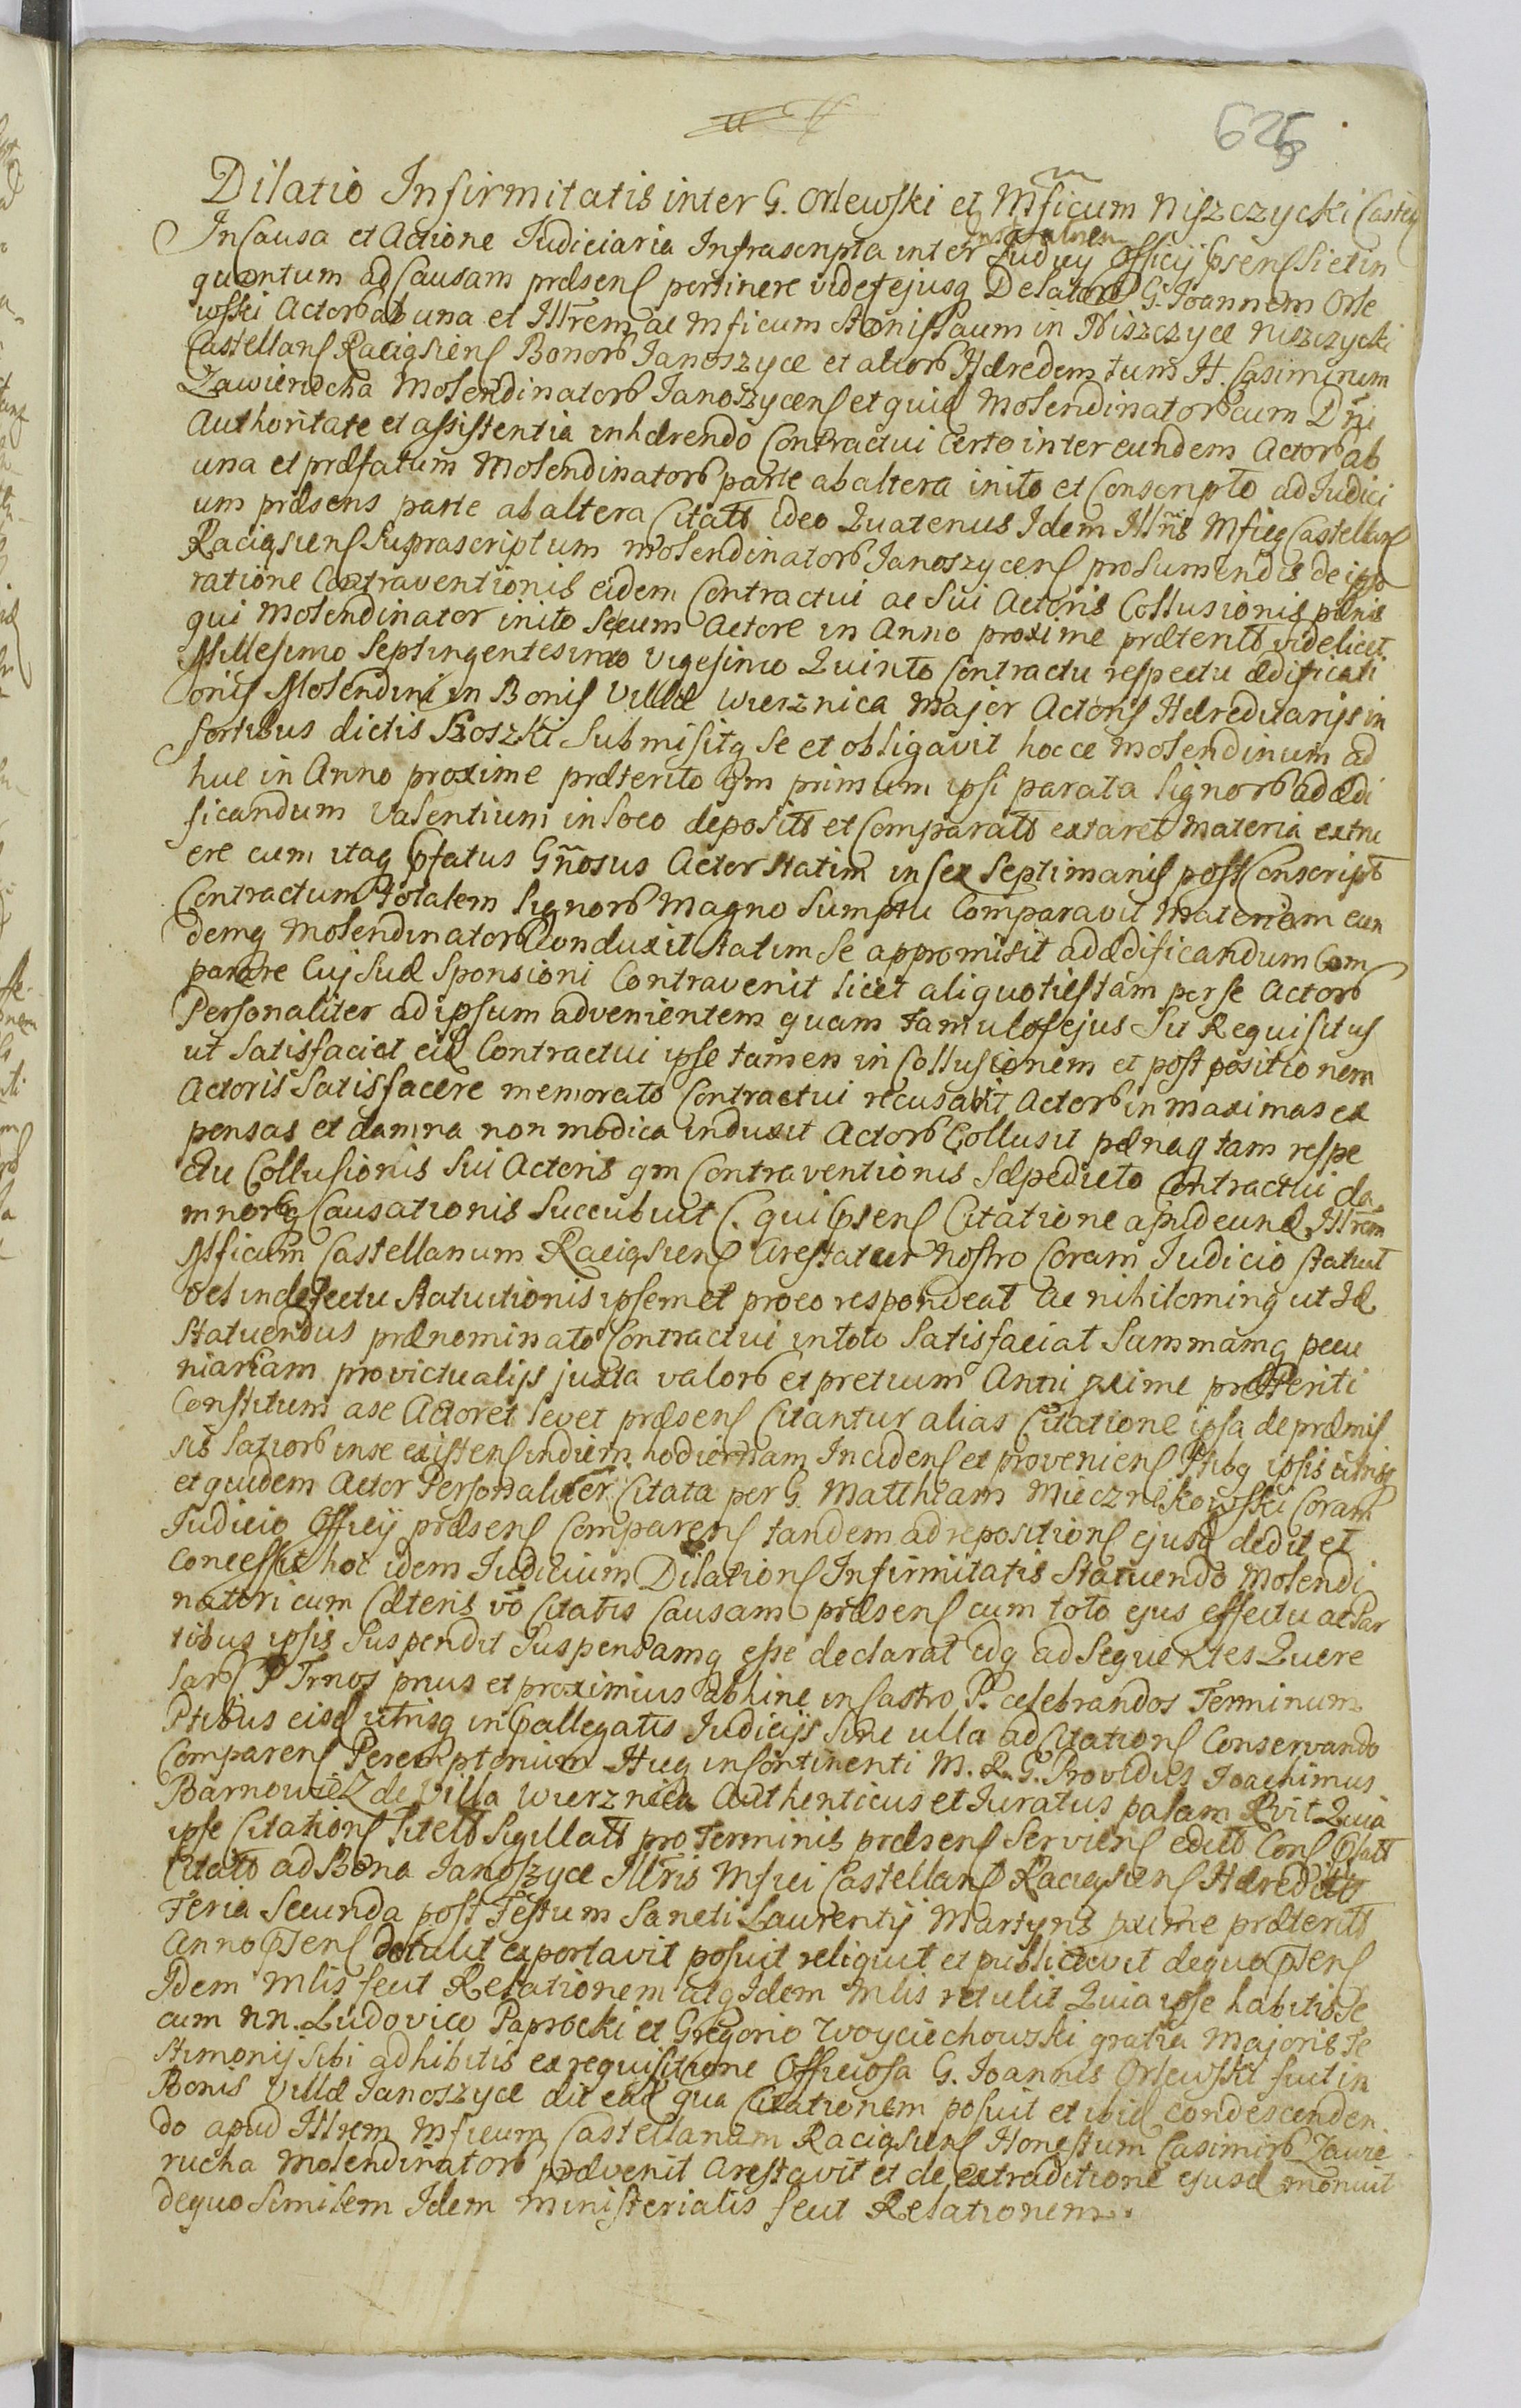 625
Dilatio Infirmitatis inter G. Orlewski et Mficum Niszczycki Castell
In Causa et Actione Judiciaria Infrascripta inter Judicy Officy psens Siet in
quantum ad Causam præsens pertinere videt ejusq Delatore G. Joannem Orle
wski Actore ab una et Illrem ac Mficum Stanislaum in Niszczyce Niszczycki
Castellans Raciązsiens Bonorb Janoszyce et aliorb Hæredem tum H. Casimirum
Zawierucha Molendinatorb Janoszycens et quid Molendinatorb cum Dñi
Authoritate et assistentia inhærendo Contractui Certo inter eundem Actorb ab
una et præfatum Molendinatorb parte ab altera inito et Conscripto ad Judici
um præsens parte ab altera Citatb ideo Quatenus Idem Illris Mficq Castellans
Raciązsiens Suprascriptum Molendinatorb Janoszycens pro Sumendis de ipso
ratione Contraventionis eidem Contractui ac Sui Actoris Collusionis pænis
qui Molendinator inito Secum Actore in Anno proxime præteritb videlicet
Millesimo Septingentesimo Vigesimo Quinto Contractu respectu ædificati
onis Molendini in Bonis Villæ Wierznica Major Actoris Hæreditarijs in
Sortibus dictis Kloszki Submisitq Se et obligavit hocce Molendinum ad
huc in Anno proxime præterito qm primum ipsi parata lignorb ad ædi
ficandum Valentium in loco depositb et Comparatb extaret Materia extru
ere cum itaq pfatus Gñosus Actor Statim in Sex Septimanis post Conscriptb
Contractum totalem lignorb Magno Sumptu Comparavit Materiam eun
demq Molendinatorb Conduxit Statim Se appromisit ad ædificandum Com
parare Cuj Suæ Sponsioni Contravenit licet aliquoties tam per se Actorb
Personaliter ad ipsum advenientem quam famulos ejus Sit Requisitus
ut Satisfaciat eid Contractui ipse tamen in Collusionem et postpositionem
Actoris Satisfacere memorato Contractui recusavit Actorb in maximas ex
pensas et damna non modica induxit Actorb Collusit pænaq tam respe
ctu Collusionis Sui Actoris qm Contraventionis Sæpedicto Contractui da
mnorbq Causationis Succubuit C. qui psens Citatione apud eund Illrem
Mficum Castellanum Raciązsiens Arestatur nostro Coram Judicio Statuat
vel in defectu Statuitionis ipsemet pro eo respondeat ac nihilominq ut Id
Statuendus prænominato Contractui in toto Satisfaciat Summamq pecu
niariam pro victualijs juxta valorb et pretium Anni pxime præteriti
Constitum a se Actoret levet præsens Citantur alias Citatione ipsa de præmis
sis latiorb in se existens in diem hodiernam Incidens et proveniens Ptibq ipsis utrisq
et quidem Actor Personaliter Citata per G. Matthiam Miecznikowski Coram
Judicio Officy præsens Comparens tandem ad repositions ejusd dedit et
concessit hoc idem Judicium Dilations Infirmitatis Statuendo Molendi
natori cum Cæteris vo Citatis Causam præsens cum toto ejus effectu ac Par
tibus ipsis Suspendit Suspensamq esse declarat idq ad Sequentes Quere
lars P Trnos prius et proximius abhinc in Castro P. celebrandos Terminum
Ptibus eisd utrisq in pallegatis Judicijs Sine ulla ad Citations Conservando
Comparens Peremptorium Hucq in Continenti M. R. G. Providus Joachimus
Barnowicz de Villa Wierznica Authenticus et Juratus palam Rvit Quia
ipse Citations litelb Sigillatb pro Terminis præsens Serviens editb Cons
Citatb ad Bona Janoszyce Illris Mfici Castellans Raciązsiens Hæreditb
Feria Secunda post Festum Sancti Laurentij Martyris pxime præteritb
Anno psens detulit exportavit posuit reliquit et publicavit de qua psens
Idem Mlis fecit Relationem atq Idem Mlis retulit Quia ipse habitis Se
cum nn. Ludovico Paprocki et Gregorio Woyciechowski gratia Majoris Te
stimonij Sibi adhibitis ex requisitione Officiosa G. Joannis Orlewski fuit in
Bonis Villæ Janoszyce die ead qua Citationem posuit et ibid condescenden
do apud Illrem Mficum Castellanum Raciązsiens Honestum Casimirb Zawie
rucha Molendinatorb prævenit Arestavit et de extraditione ejusd monuit
de quo Similem Idem Ministerialis fecit Relationem.